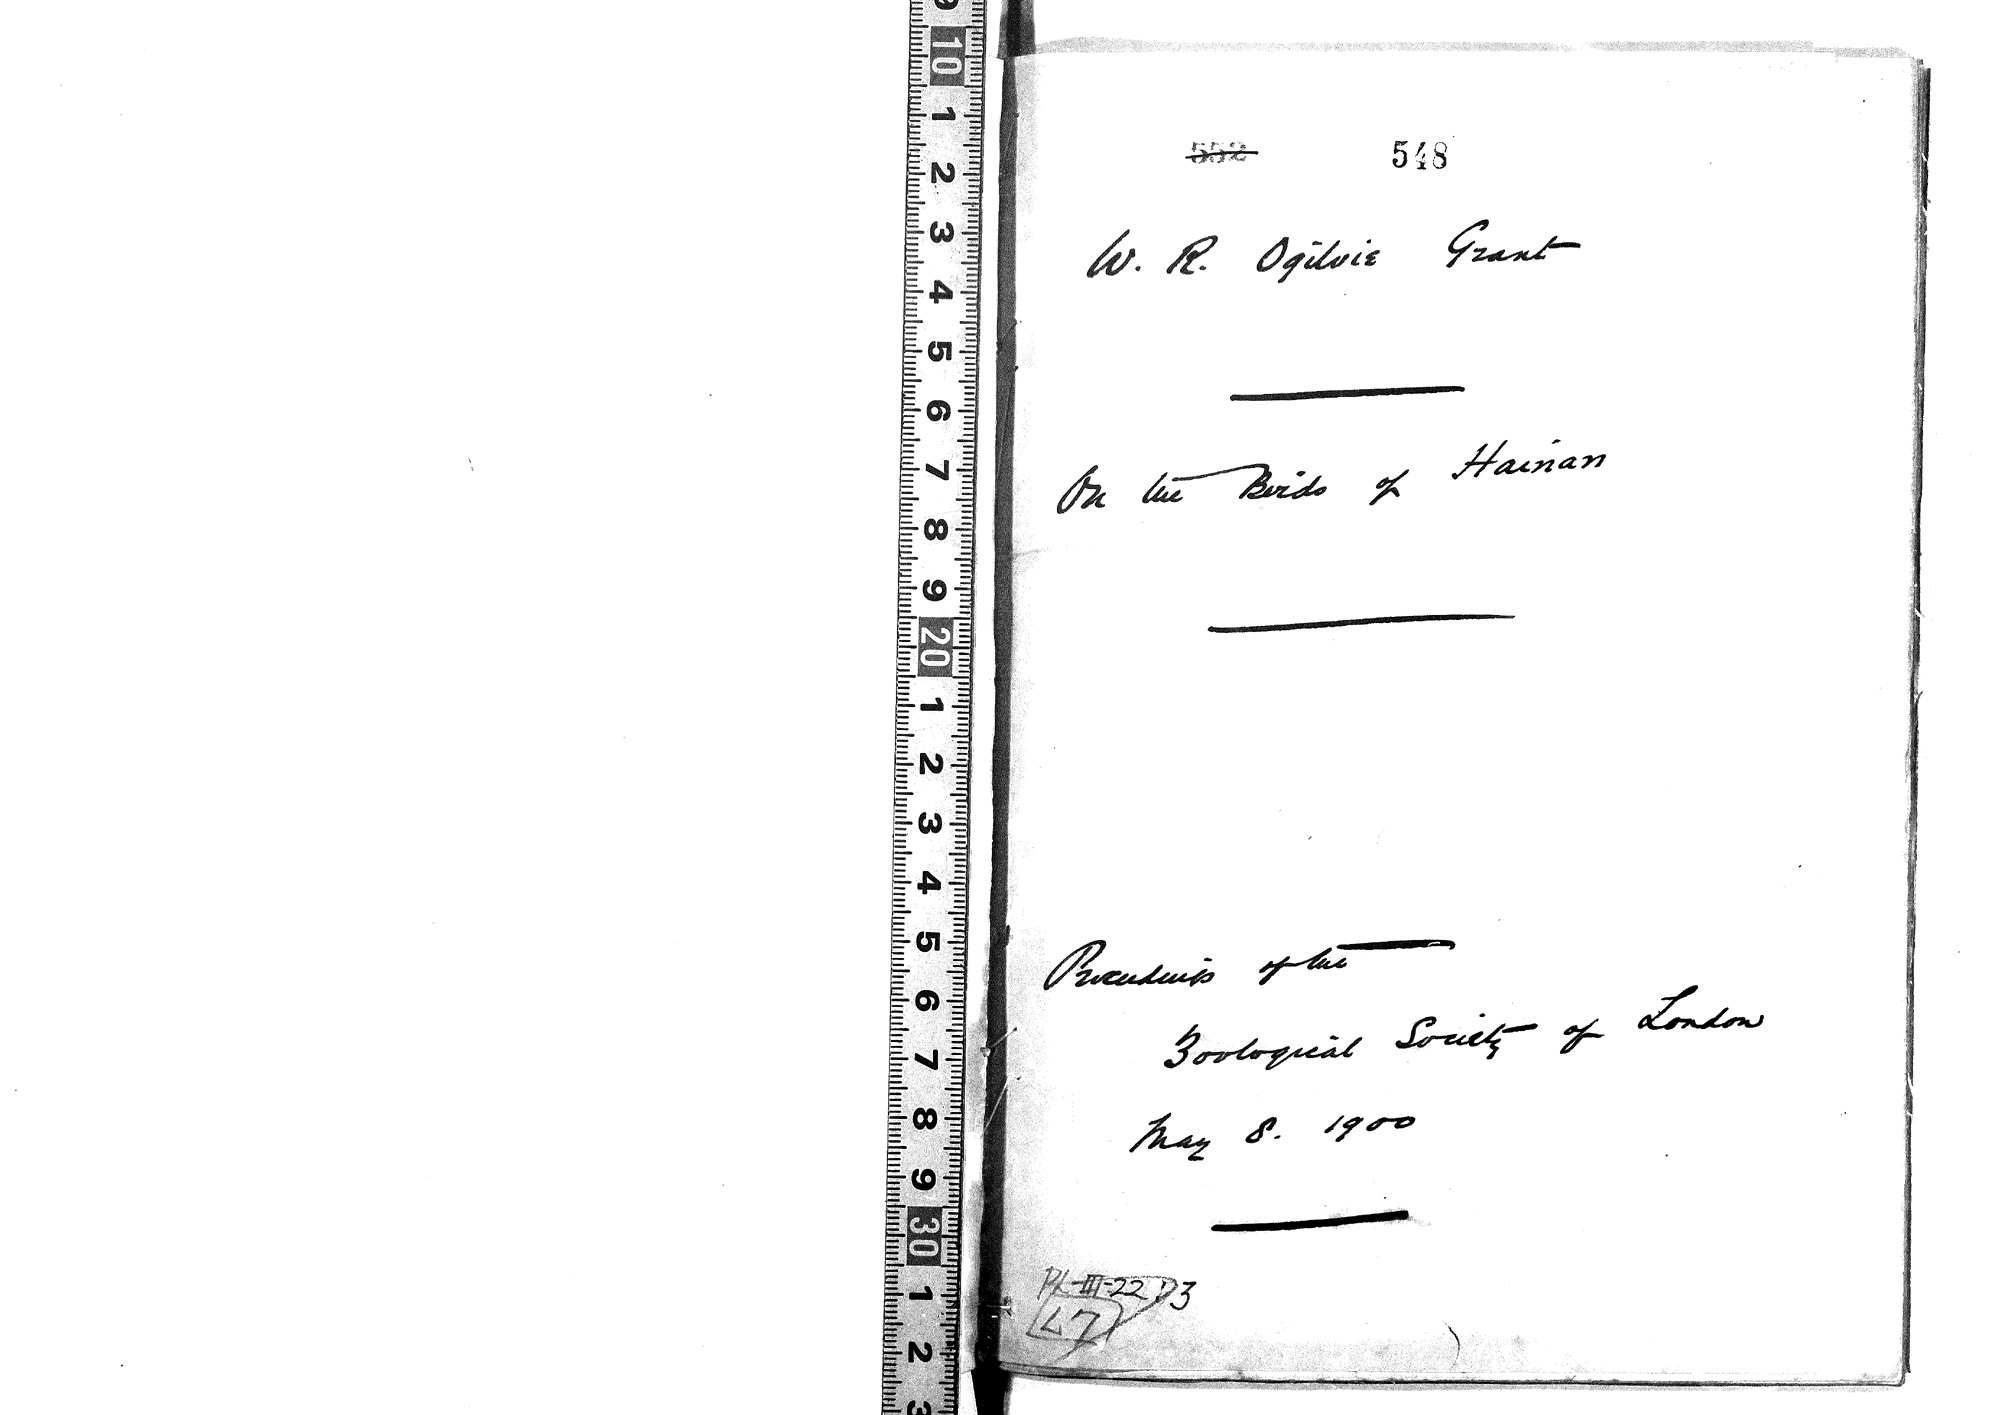 552 548
W. R. Ogilvie Grant
On the Birds of Hainan
Proceedings of the
Zoological Society of London
May 8. 1900
PL-III-22 D3
47
9
10
1
2
3
4
5
6
7
8
9
20
1
2
3
4
5
6
7
8
9
30
1
2
3